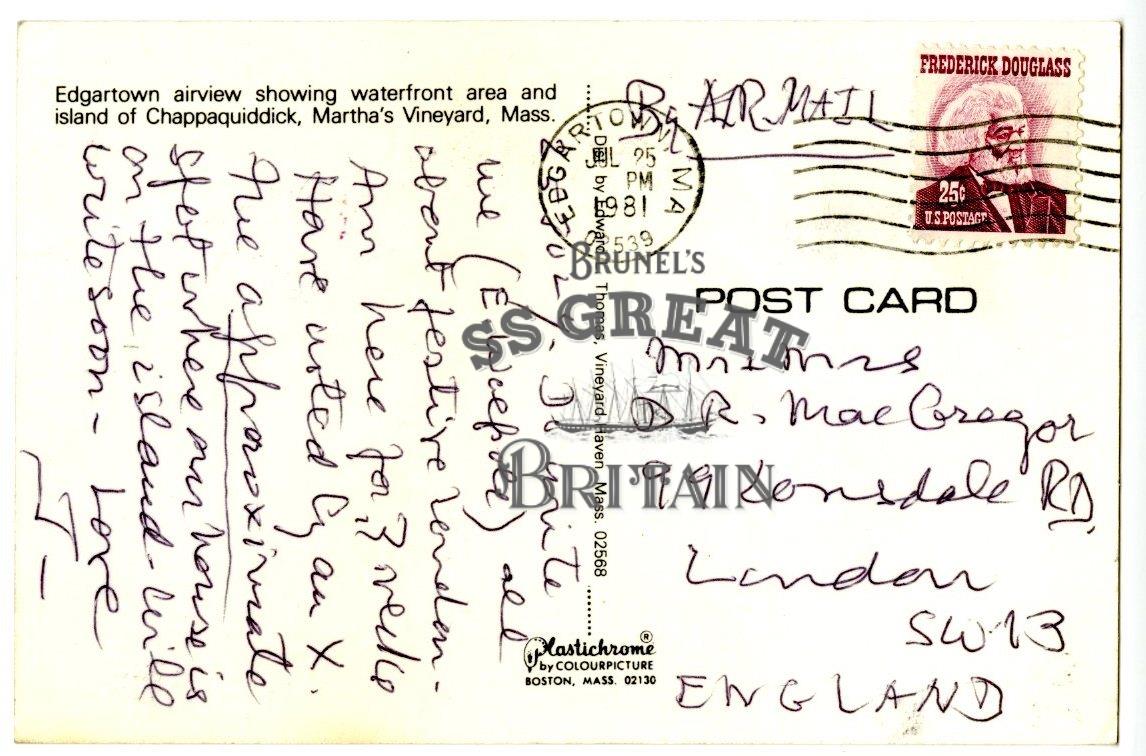 Edgartown airview showing waterfront area and
island of Chappaquiddick, Martha's Vineyard, Mass.
By AIR MAIL
FREDERICK DOUGLASS
25¢
U.S. POSTAGE
EDGARTOWN MA
JUL 25
PM
1981
02539
BRUNEL'S
SS GREAT
BRITAIN
POST CARD
Mr & Mrs
D R. MacGregor
99 Lonsdale RD,
London
SW13
ENGLAND
by Edward Thomas, Vineyard Haven, Mass. 02568
Plastichrome®
by COLOURPICTURE
BOSTON, MASS. 02130
Do write
me all
about festive London.
Am here for 3 weeks
Have noted by an X.
The approximate
spot where our house is
on the island - Will
write soon - Love
- J -